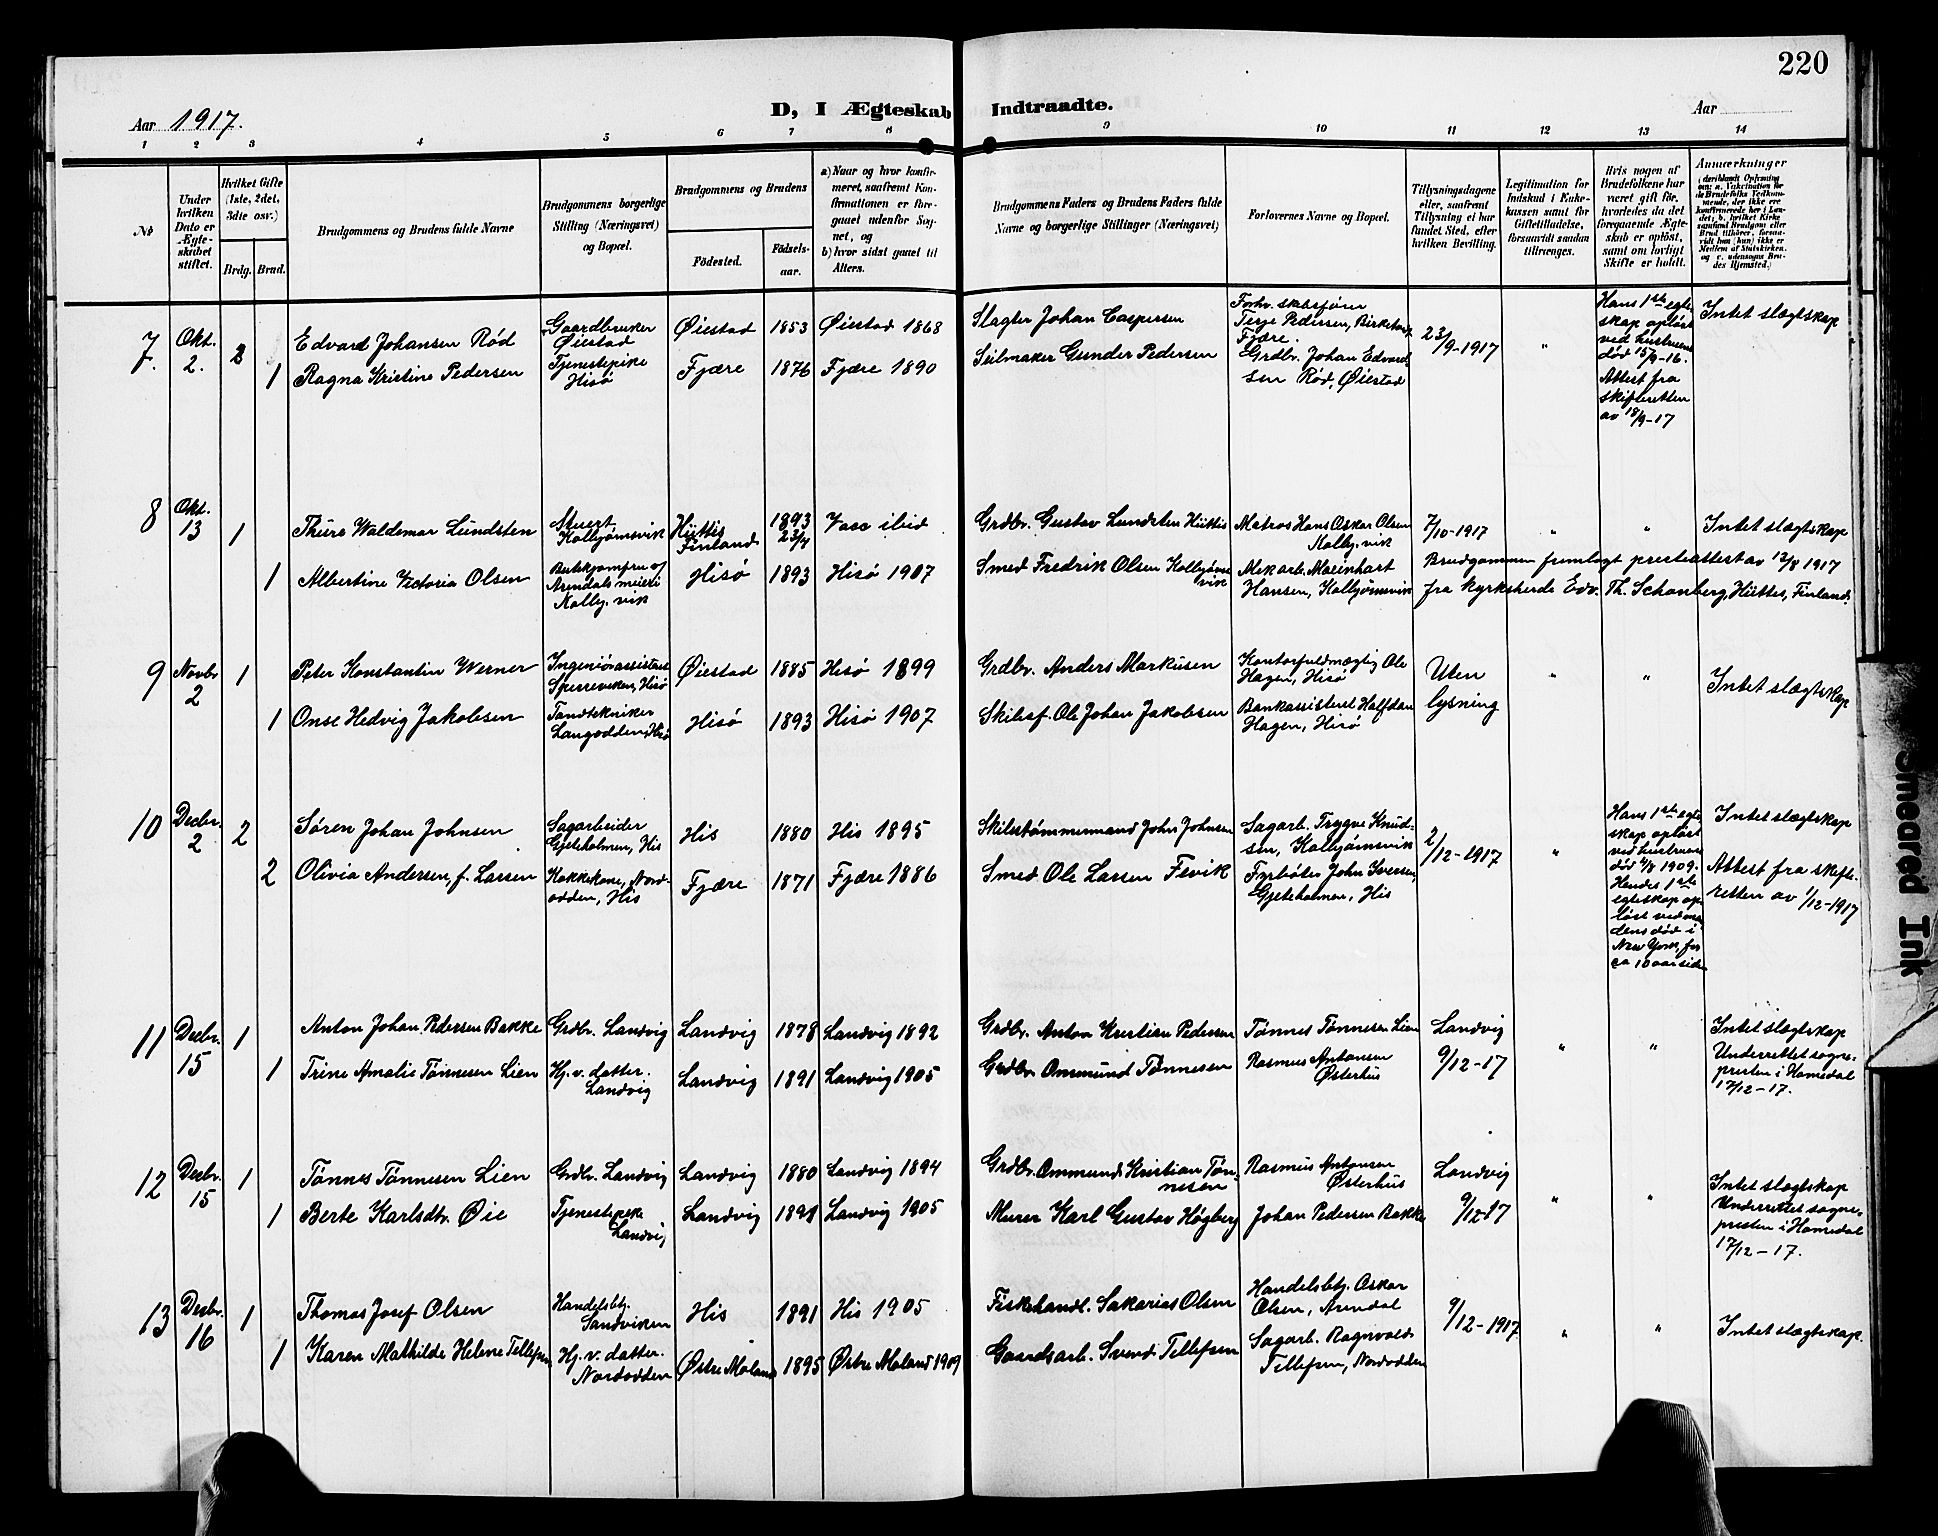 220
Aar 1917.
D, I Ægteskab Indtraadte.
Aar
1 2 3 4 5 6 7 8 9 10 11 12 13 14
No
Under hvilken Dato er Ægteskabet stiftet.
Hvilket Gifte (1ste, 2det, 3die osv.)
Brdg. Brud.
Brudgommens og Brudens fulde Navne
Brudgommens borgerlige Stilling (Næringsvei) og Bopæl.
Brudgommens og Brudens
Födested.
Födselsaar.
a) Naar og hvor konfirmeret, saafremt Konfirmationen er foregaaet udenfor Sognet, og
b) hvor sidst gaaet til Alters.
Brudgommens Faders og Brudens Faders fulde Navne og borgerlige Stillinger (Næringsvei)
Forlovernes Navne og Bopæl.
Tillysningsdagene eller, saafremt Tillysning ei har fundet Sted, efter hvilken Bevilling.
Legitimation for Indskud i Enkekassen samt for Giftetilladelse, forsaavidt saadan tiltrænges.
Hvis nogen af Brudefolkene har været gift før, hvorledes da det foregaaende Ægteskab er opløst, samt om lovligt Skifte er holdt.
Anmærkninger
7. Okt. 2. 2 Edvard Johansen Rød Gaardbruker Øiestad Øiestad 1853 Øiestad 1868 Slagter Johan Caspersen Forhv. skibsfører Terje Pedersen, Birketveit, Fjære. 23/9-1917 " Hans 1ste egteskap opløst ved hustruens død 15/9-16. Attest fra skifteretten av 18/9-17 Intet slægtskap
1 Ragna Kristine Pedersen Tjenestepike Hisø Fjære 1876 Fjære 1890 Seilmaker Gunder Pedersen Grdbr. Johan Edvardsen Rød, Øiestad
8 Okt. 13 1 Thure Waldemar Lundsten Stuert Kolbjørnsvik Hiittis Finland 1893 23/7 Vase ibid Grdbr. Gustav Lundsten Hiittis Matros Hans Oskar Olsen Kolbj.vik 7/10-1917 " " Intet slægtskap
1 Albertine Victoria Olsen Butikjomfru v/ Arendals meieri Kolbj.vik Hisø 1893 Hisø 1907 Smed Fredrik Olsen Kolbjørnsvik Mek.arb. Mainhart Hansen, Kolbjørnsvik Brudgommen fremlagt presteattest av 12/8 1917
fra Kyrkoherde Edv. Th. Schonberg, Hiittes, Finland.
9 Novbr 2 1 Peter Konstantin Werner Ingeniørassistent Sperreviken, Hisø Øiestad 1885 Hisø 1899 Grdbr. Anders Markusen Kontorfuldmægtig Ole Hagen, Hisø Uten lysning " " Intet slægtskap
1 Onse Hedvig Jakobsen Tandtekniker Langodden, Hisø Hisø 1893 Hisø 1907 Skibsf. Ole Johan Jakobsen Bankassistent Halfdan Hagen, Hisø
10 Decbr. 2 2 Søren Johan Johnsen Sagarbeider Gjeteholmen, His His 1880 His 1895 Skibstømmermand John Johnsen Sagarb. Trygve Knudsen, Kolbjørnsvik 2/12-1917 " Hans 1ste egteskap opløst ved hustruens død 4/8 1909. Hendes 1ste egteskap opløst ved mandens død i New York, for ca 10 aar siden Intet slægtskap
2 Olivia Andersen, f. Larsen Kokkekone, Nordodden, His Fjære 1871 Fjære 1886 Smed Ole Larsen Fevik Fyrbøter John Iversen, Gjeteholmen, His Attest fra skifteretten av 1/12-1917
11 Decbr. 15 1 Anton Johan Pedersen Bakke Grdbr. Landvig Landvig 1878 Landvig 1892 Grdbr. Anton Kristian Pedersen Tønnes Tønnesen Lien Landvig 9/12-17 " " Intet slægtskap Underrettet sognepresten i Homedal 17/12-17.
1 Trine Amalie Tønnesen Lien Hj. v. datter. Landvig Landvig 1891 Landvig 1905 Grdbr. Ommund Tønnesen Rasmus Antonsen Østerhus
12 Decbr. 15 1 Tønnes Tønnesen Lien Grdbr. Landvig Landvig 1880 Landvig 1894 Grdbr. Ommund Kristian Tønnesen Rasmus Antonsen Østerhus Landvig 9/12-17 " " Intet slægtskap Underrettet sognepresten i Homedal 17/12-17.
1 Berte Karlsdtr. Øie Tjenestepike Landvig Landvig 1891 Landvig 1905 Murer Karl Gustav Høgberg Johan Pedersen Bakke
13 Decbr. 16 1 Thomas Josef Olsen Handelsbtj. Sandviken His 1891 His 1905 Fiskehandl. Sakarias Olsen Handelsbtj. Oskar Olsen, Arendal 9/12-1917 " " Intet slægtskap.
1 Karen Mathilde Helene Tellefsen Hj. v. datter. Nordodden Østre Moland 1895 Østre Moland 1909 Gaardsarb. Svend Tellefsen Sagarb. Ragnvald Tellefsen, Nordodden
Smeared Ink